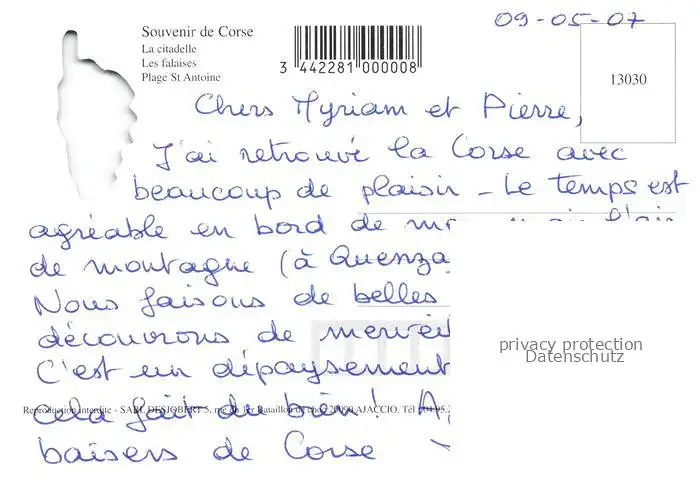 09-05-07
Souvenir de Corse
La citadelle
Les falaises
Plage St Antoine
3 442281 000008
13030
Chers Myriam et Pierre,
J'ai retrouvé la Corse avec
beaucoup de plaisir - Le temps est
agréable en bord de
de montagne (à Quenza
Nous faisons de belles
découvrons de
C'est un dépaysement
cela fait du bien !
baisers de Corse
Reproduction interdite - SARL DESJOBERT 5, rue du 1er Bataillon de choc 20090 AJACCIO. Tél : 04.95.
privacy protection
Datenschutz